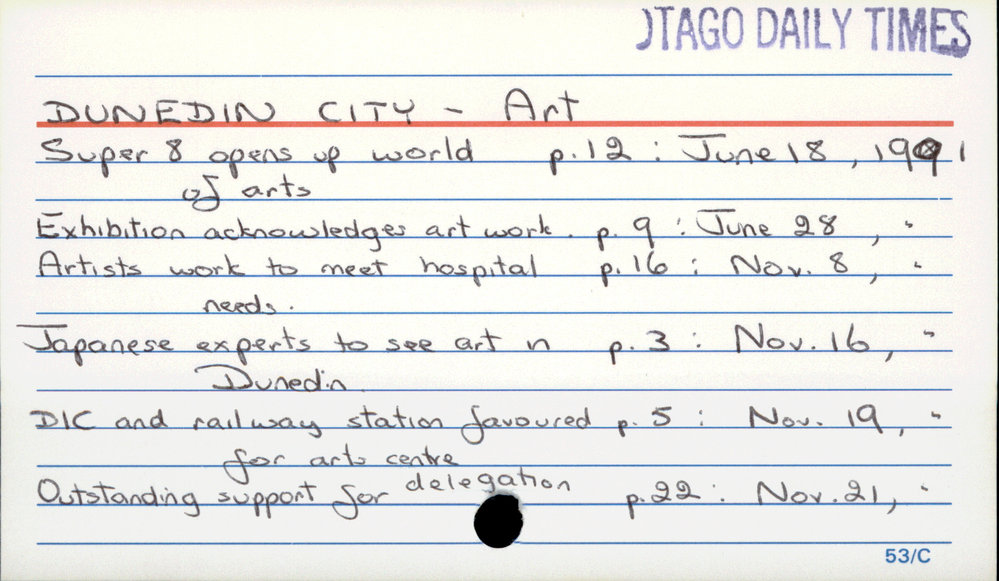 OTAGO DAILY TIMES
DUNEDIN CITY - Art
Super 8 opens up world p.12 : June 18, 1991
of arts
Exhibition acknowledges art work. p. 9 : June 28, "
Artists work to meet hospital p.16 : Nov. 8, "
needs.
Japanese experts to see art in p. 3 : Nov. 16, "
Dunedin.
DIC and railway station favoured p. 5 : Nov. 19, "
for arts centre
Outstanding support for delegation p.22 : Nov. 21, "
53/C